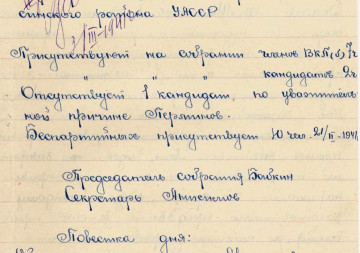 синского района УАССР
/III-1941
Присутствуют на собрании членов ВКП(б) 7ч
" " кандидатов 2ч
Отсутствует 1 кандидат, по уважитель
ной причине Перминов.
Беспартийных присутствует 10 чел. 21/II-1941
Председатель собрания Бойкин
Секретарь Анисимов
Повестка дня: